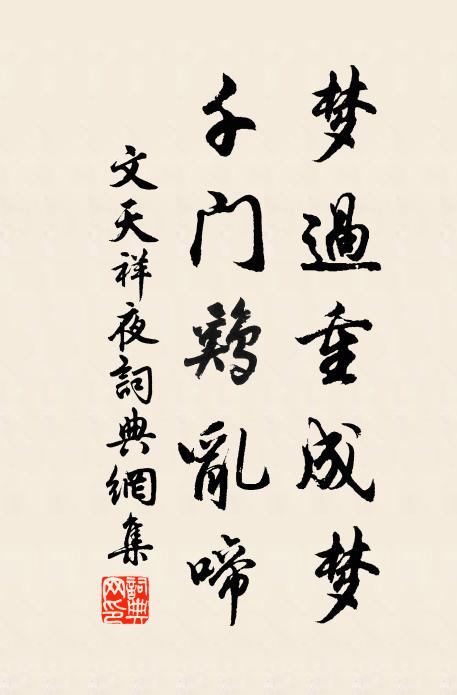 梦過重成梦
千门鷄亂啼
文天祥夜詞典網集
詞典网印